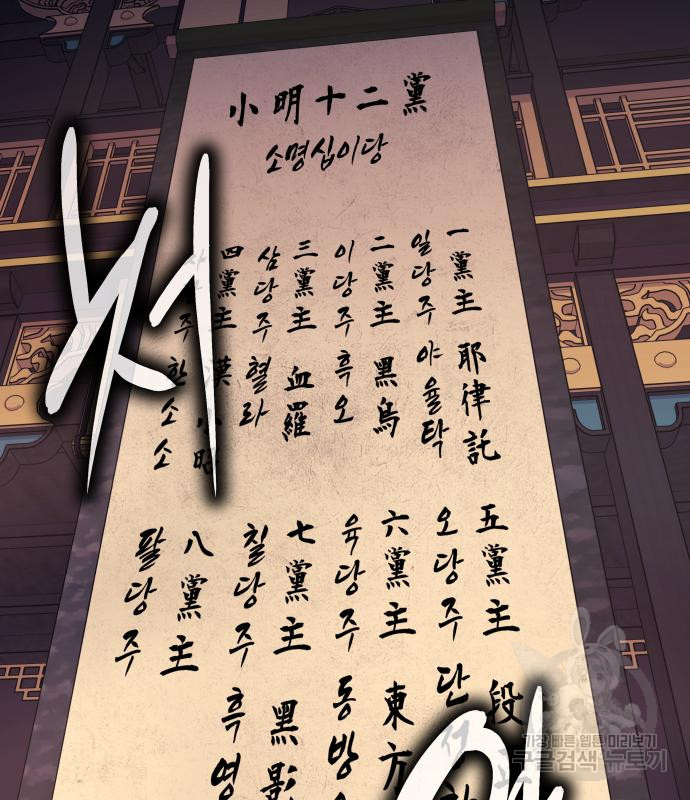 小明十二黨
소명십이당
一黨主 耶律託
일당주 야율탁
二黨主 黑烏
이당주 흑오
三黨主 血羅
삼당주 혈라
四黨主 漢小昭
한소소
五黨主 段
오당주 단
六黨主 東方
육당주 동방
七黨主 黑影
칠당주 흑영
八黨主
팔당주
가장 빠른 웹툰 미리보기
구글검색 뉴토끼